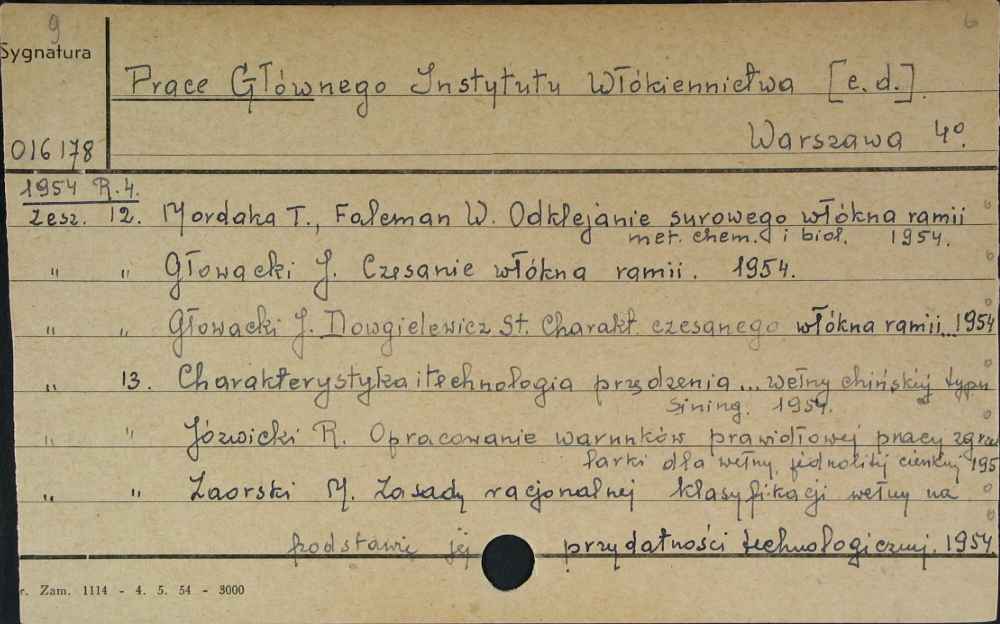 9
6
Sygnatura
Prace Głównego Instytutu Włókiennictwa [c.d.].
016178
Warszawa 4°.
1954 R.4.
Zesz. 12. Mordaka T., Faleman W. Odklejanie surowego włókna ramii
met. chem. i biol. 1954.
" " Głowacki J. Czesanie włókna ramii. 1954.
" " Głowacki J. Dowgielewicz St. Charakt. czesanego włókna ramii... 1954
" 13. Charakterystyka i technologia przędzenia ... wełny chińskiej typu
Sining. 1954.
" " Józwicki R. Opracowanie warunków prawidłowej pracy zgrze
larki dla wełny jednolitej cienkiej 195
" " Zaorski M. Zasady racjonalnej klasyfikacji wełny na
podstawie jej przydatności technologicznej. 1954.
r. Zam. 1114 - 4. 5. 54 - 3000